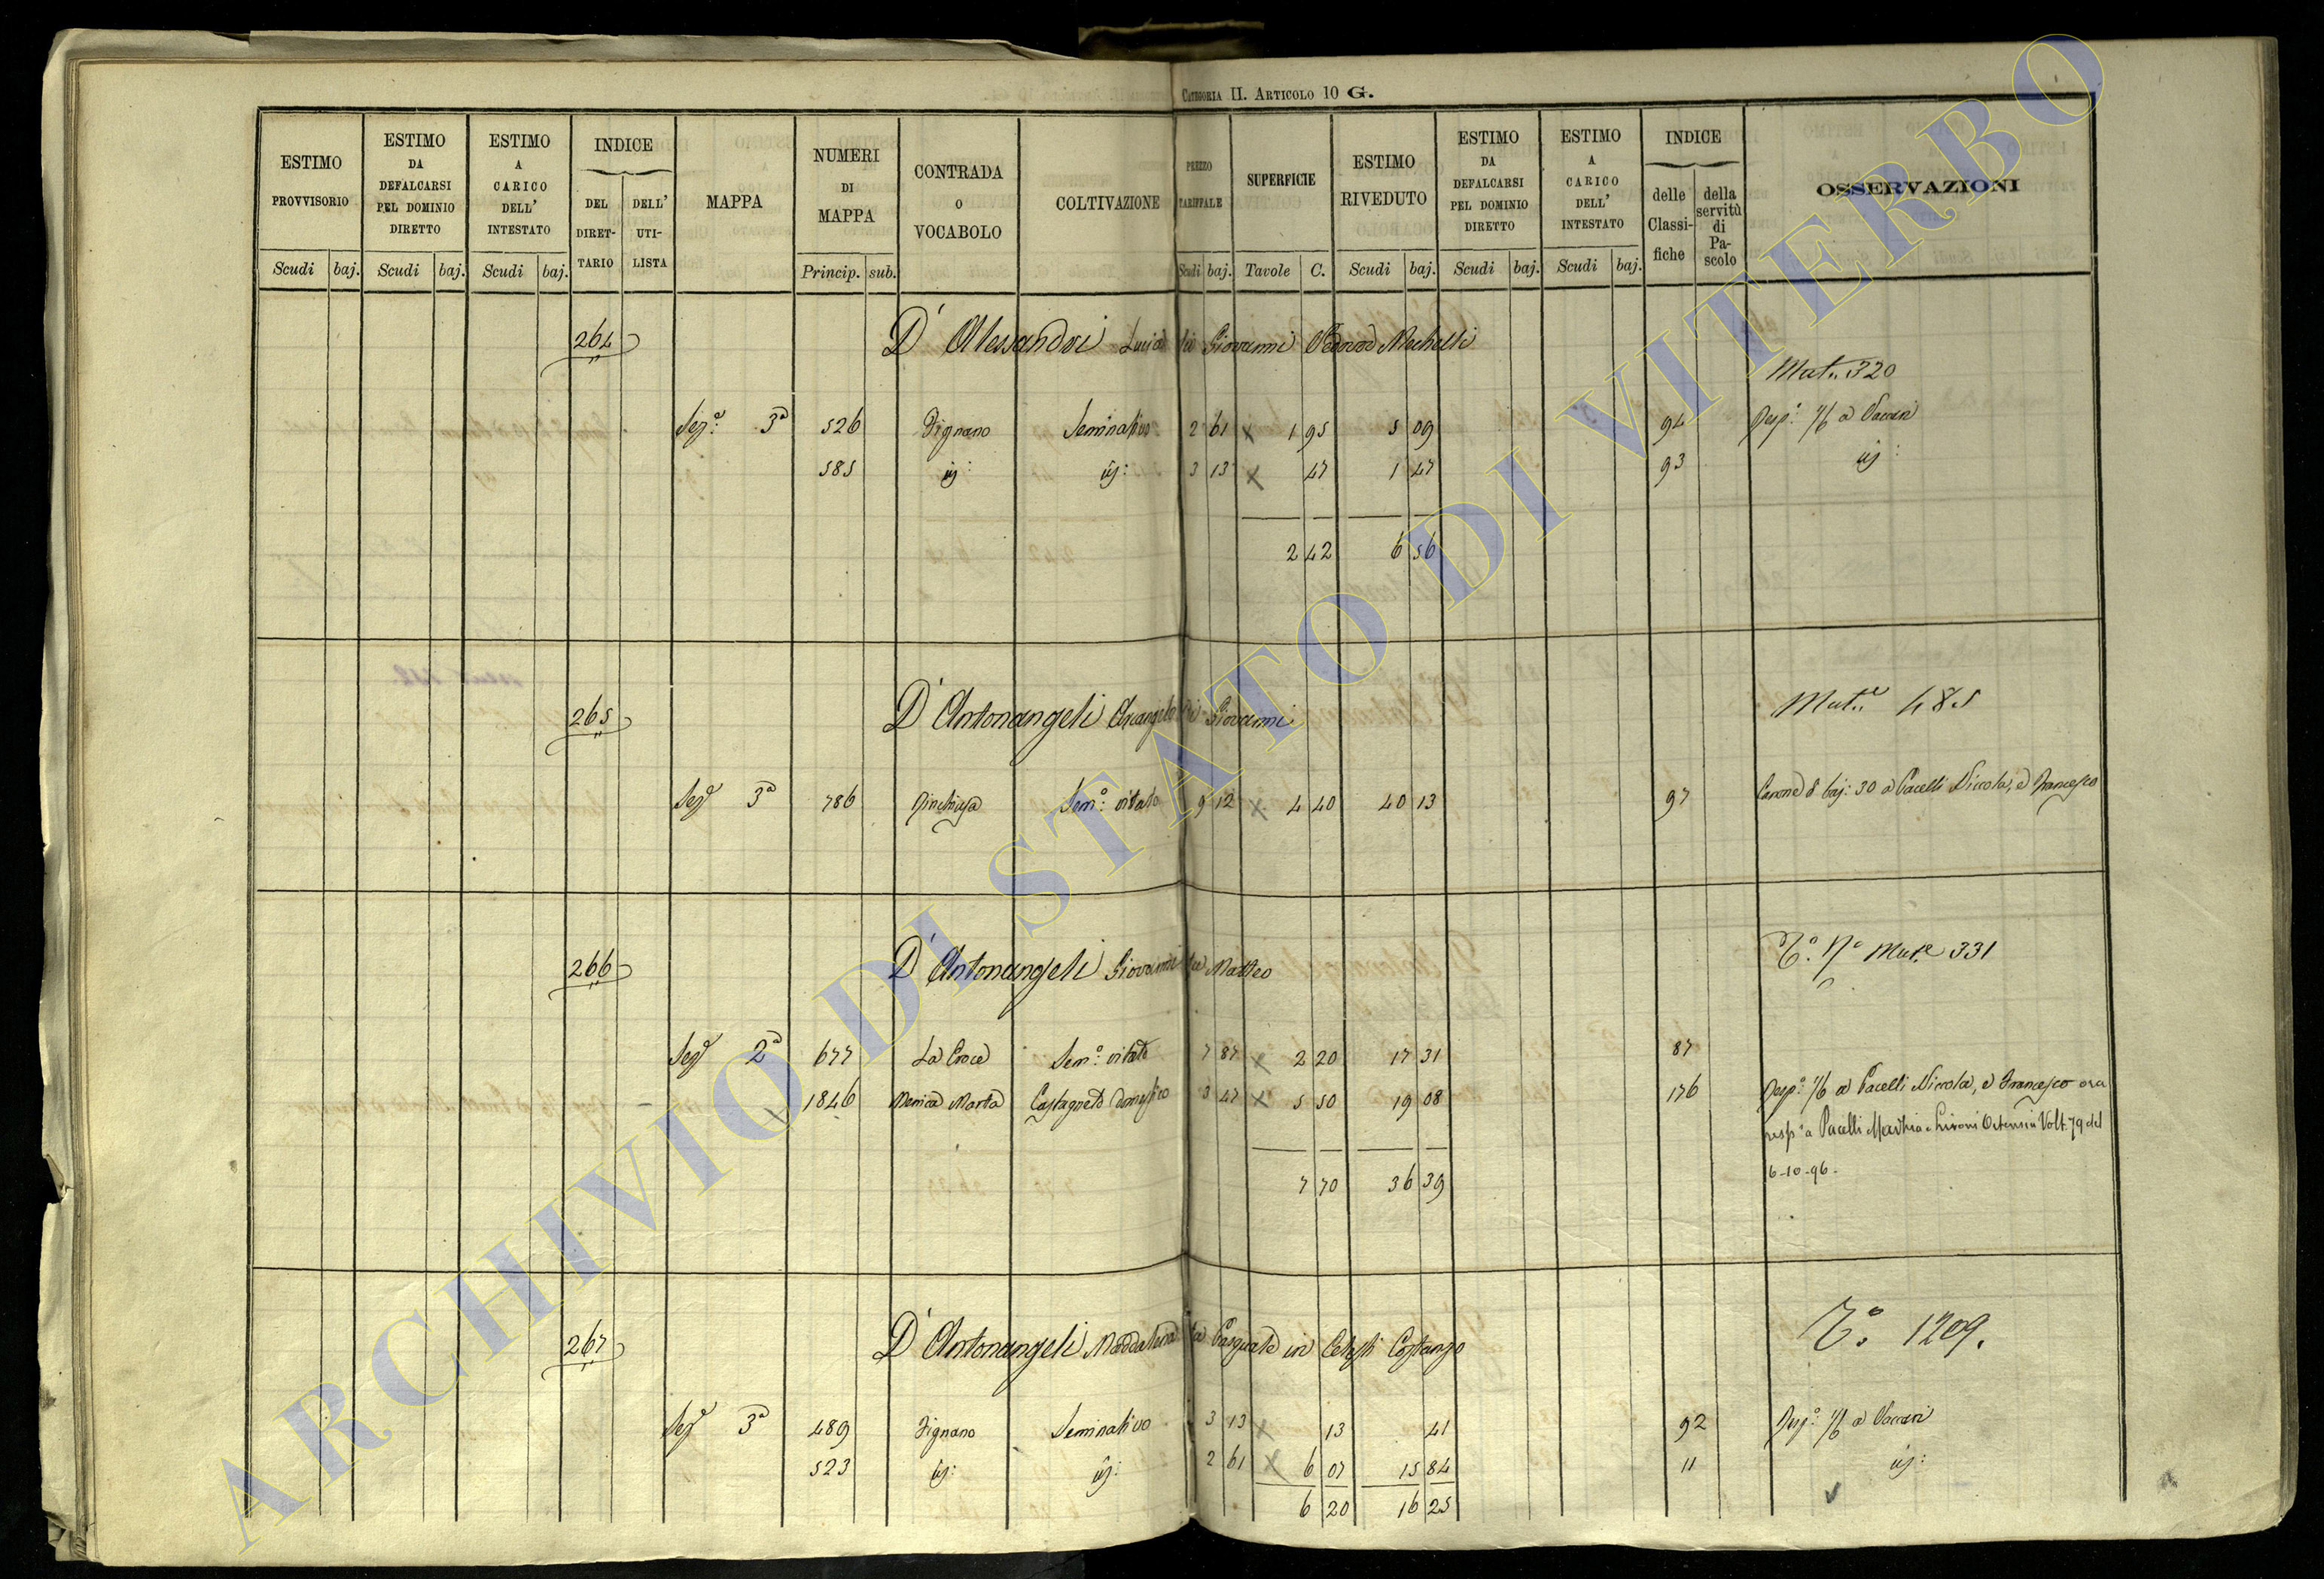 CATEGORIA II. ARTICOLO 10 G.
ESTIMO PROVVISORIO Scudi baj.
ESTIMO DA DEFALCARSI PEL DOMINIO DIRETTO Scudi baj.
ESTIMO A CARICO DELL' INTESTATO Scudi baj.
INDICE DEL DIRET-TARIO DELL' UTI-LISTA
MAPPA
NUMERI DI MAPPA Princip. sub.
CONTRADA O VOCABOLO
COLTIVAZIONE
PREZZO TARIFFALE Scudi baj.
SUPERFICIE Tavole C.
ESTIMO RIVEDUTO Scudi baj.
ESTIMO DA DEFALCARSI PEL DOMINIO DIRETTO Scudi baj.
ESTIMO A CARICO DELL' INTESTATO Scudi baj.
INDICE delle Classi-fiche della servitù di Pa-scolo
OSSERVAZIONI
264 D'Alessandri Lucia fu Giovanni Vedova Mechelli
Mat. 320
Sez.e 3a 526 Fignano Seminativo 2 61 x 1 95 5 09 94 Resp.o 1/6 a Vaccari
585 id: id: 3 13 x 47 1 47 93 id:
2 42 6 56
265 D'Antonangeli Arcangelo di Giovanni Mat.e 485
Sez.e 3a 786 Sem.o vitato 9 12 x 4 40 40 13 97 Canone S baj: 30 a Pacelli Niccola, e Francesco
266 D'Antonangeli Giovanni fu Matteo Mat.e 331
Sez.e 2a 677 La Croce Sem.o vitato 7 87 x 2 20 17 31 87
x 1846 Menica Marta Castagneto domestico 3 47 x 5 50 19 08 176 Resp.o 1/6 a Pacelli Niccola, e Francesco ora
resp.o a Pacelli Ortensia Volt. 79 del
6-10-96.
7 70 36 39
267 D'Antonangeli Maddalena fu Pasquale in Celesti Costanzo 1209.
Sez.e 3a 489 Fignano Seminativo 3 13 x 13 41 92 Resp.o 1/6 a Vaccari
523 id: id: 2 61 x 6 07 15 84 11 id:
6 20 16 25
ARCHIVIO DI STATO DI VITERBO